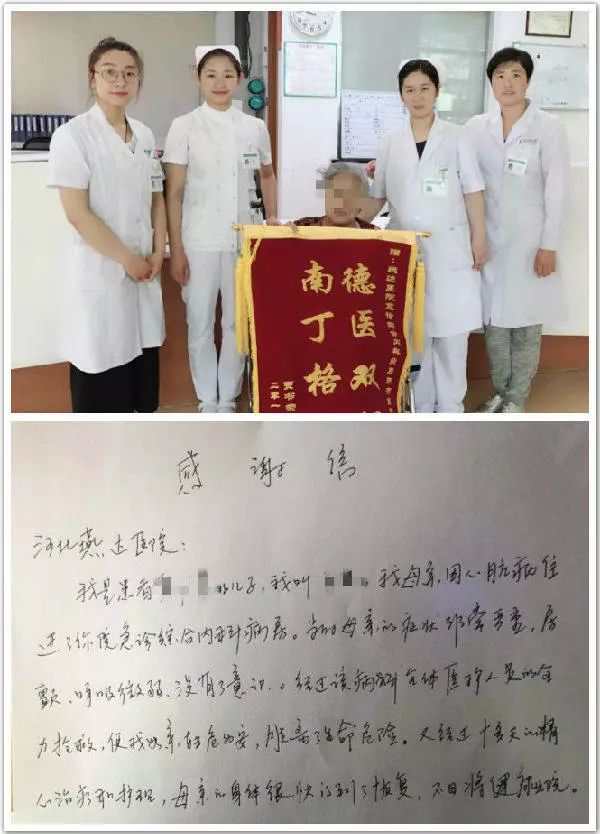 赠：燕达医院急诊综合内科病房
德医双
南丁格
二零一
感谢信
河北燕达医院：
我是患者 的儿子，我叫 。我母亲，因心脏病住
进了你院急诊综合内科病房。当时母亲的症状非常严重，房
颤、呼吸微弱、没有了意识。经过该病科全体医护人员的全
力抢救，使我母亲转危为安，脱离了生命危险。又经过十多天的精
心治疗和护理，母亲的身体很快得到了恢复，不日将健康出院。